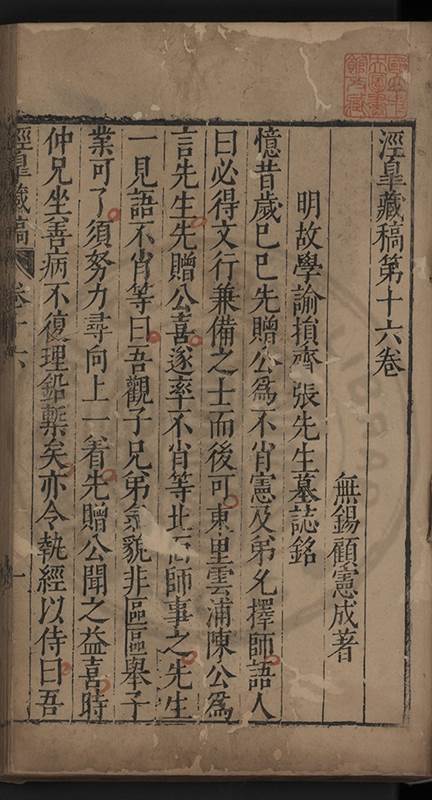 涇皐藏稿第十六卷
無錫顧憲成著
明故學諭損齋張先生墓誌銘
憶昔歲己巳先贈公爲不肖憲及弟允擇師語人
曰必得文行兼備之士而後可東里雲浦陳公爲
言先生先贈公喜遂率不肖等北面師事之先生
一見語不肖等曰吾觀子兄弟氣貌非區區舉子
業可了須努力尋向上一着先贈公聞之益喜時
仲兄坐善病不復理鉛槧矣亦令執經以侍曰吾
涇皐藏稿 卷十六 一